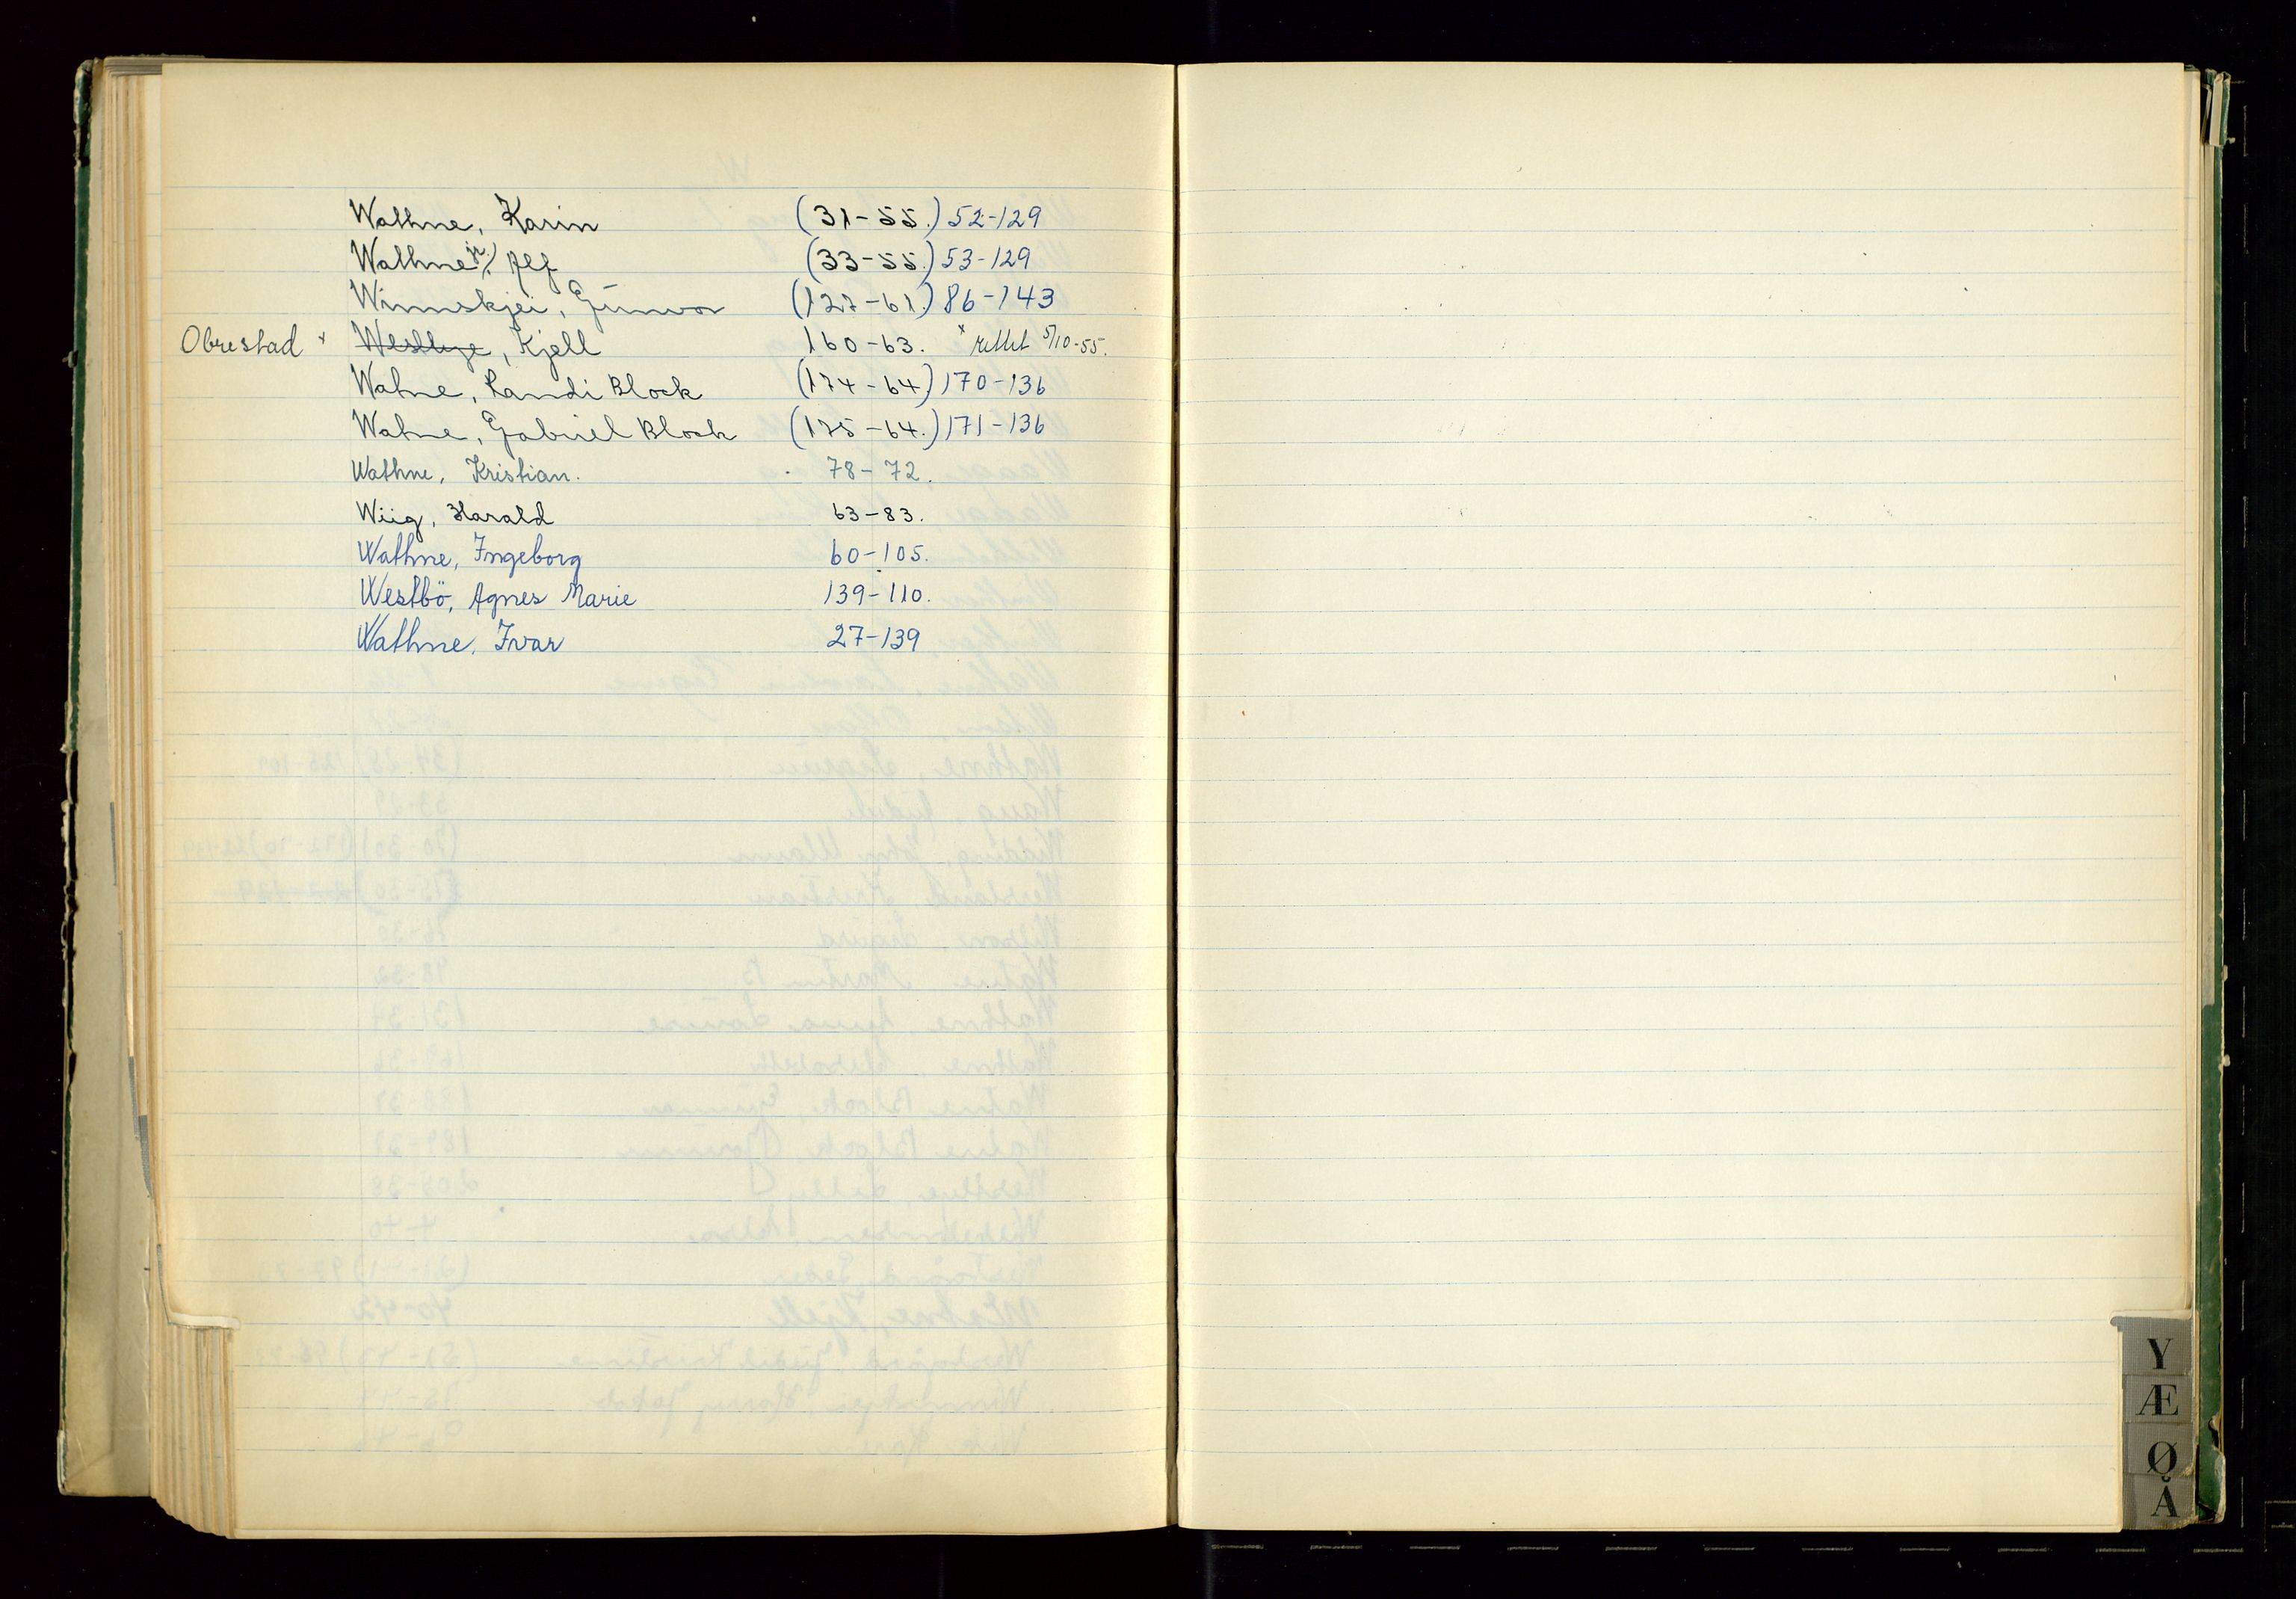 Wathne, Karin (31-55.) 52-129
Wathne jr., Alf (33-55.) 53-129
Winnskjei, Gunvor (127-61.) 86-143
Obrestad x ~~Westlye~~, Kjell 160-63. x rettet 5/10-55.
Watne, Randi Block (174-64) 170-136
Watne, Gabriel Block (175-64.) 171-136
Wathne, Kristian. 78-72.
Wiig, Harald 63-83.
Wathne, Ingeborg 60-105.
Westbö, Agnes Marie 139-110.
Wathne, Ivar 27-139
Y
Æ
Ø
Å